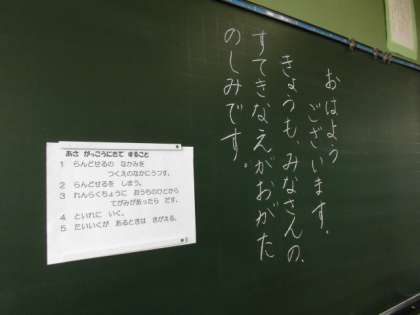 おはよう
ございます。
きょうも、みなさんの
すてきなえがおがた
のしみです。
あさ がっこうにきて すること
1 らんどせるの なかみを
つくえのなかにうつす。
2 らんどせるを しまう。
3 れんらくちょうに おうちのひとから
てがみがあったら だす。
4 といれに いく。
5 たいいくが あるときは きがえる。